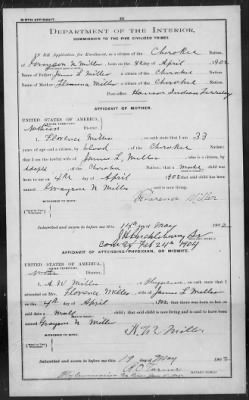 BIRTH AFFIDAVIT.
DEPARTMENT OF THE INTERIOR,
COMMISSION TO THE FIVE CIVILIZED TRIBES.
Application for Enrollment, as a citizen of the Cherokee Nation,
of Grayson N Miller, born on the 4th day of April 1902
Name of Father James L Miller a citizen of the Cherokee Nation.
Name of Mother Florence Miller a citizen of the Cherokee Nation.
Post-office Indian Territory
AFFIDAVIT OF MOTHER.
UNITED STATES OF AMERICA,
INDIAN TERRITORY,
Northern District.
I, Florence Miller, on oath state that I am 33
years of age and a citizen, by blood of the Cherokee Nation;
that I am the lawful wife of James L. Miller, who is a citizen, by
adoption of the Cherokee Nation; that a male child was
born to me on 4th day of April 1902; that said child has been named
Grayson N Miller, and is now living.
Florence Miller
Subscribed and sworn to before me this day of May 1902
Feb 24th 1904
AFFIDAVIT OF ATTENDING PHYSICIAN, OR MIDWIFE.
UNITED STATES OF AMERICA,
INDIAN TERRITORY,
District.
I, A. W. Miller, a Physician, on oath state that I
attended on Mrs. Florence Miller, wife of James L Miller
on the 4th day of April 1902; that there was born to her on
said date a male child; that said child is now living and is said to have been
named Grayson N Miller
A. W. Miller
Subscribed and sworn to before me this 19 day of May 1902